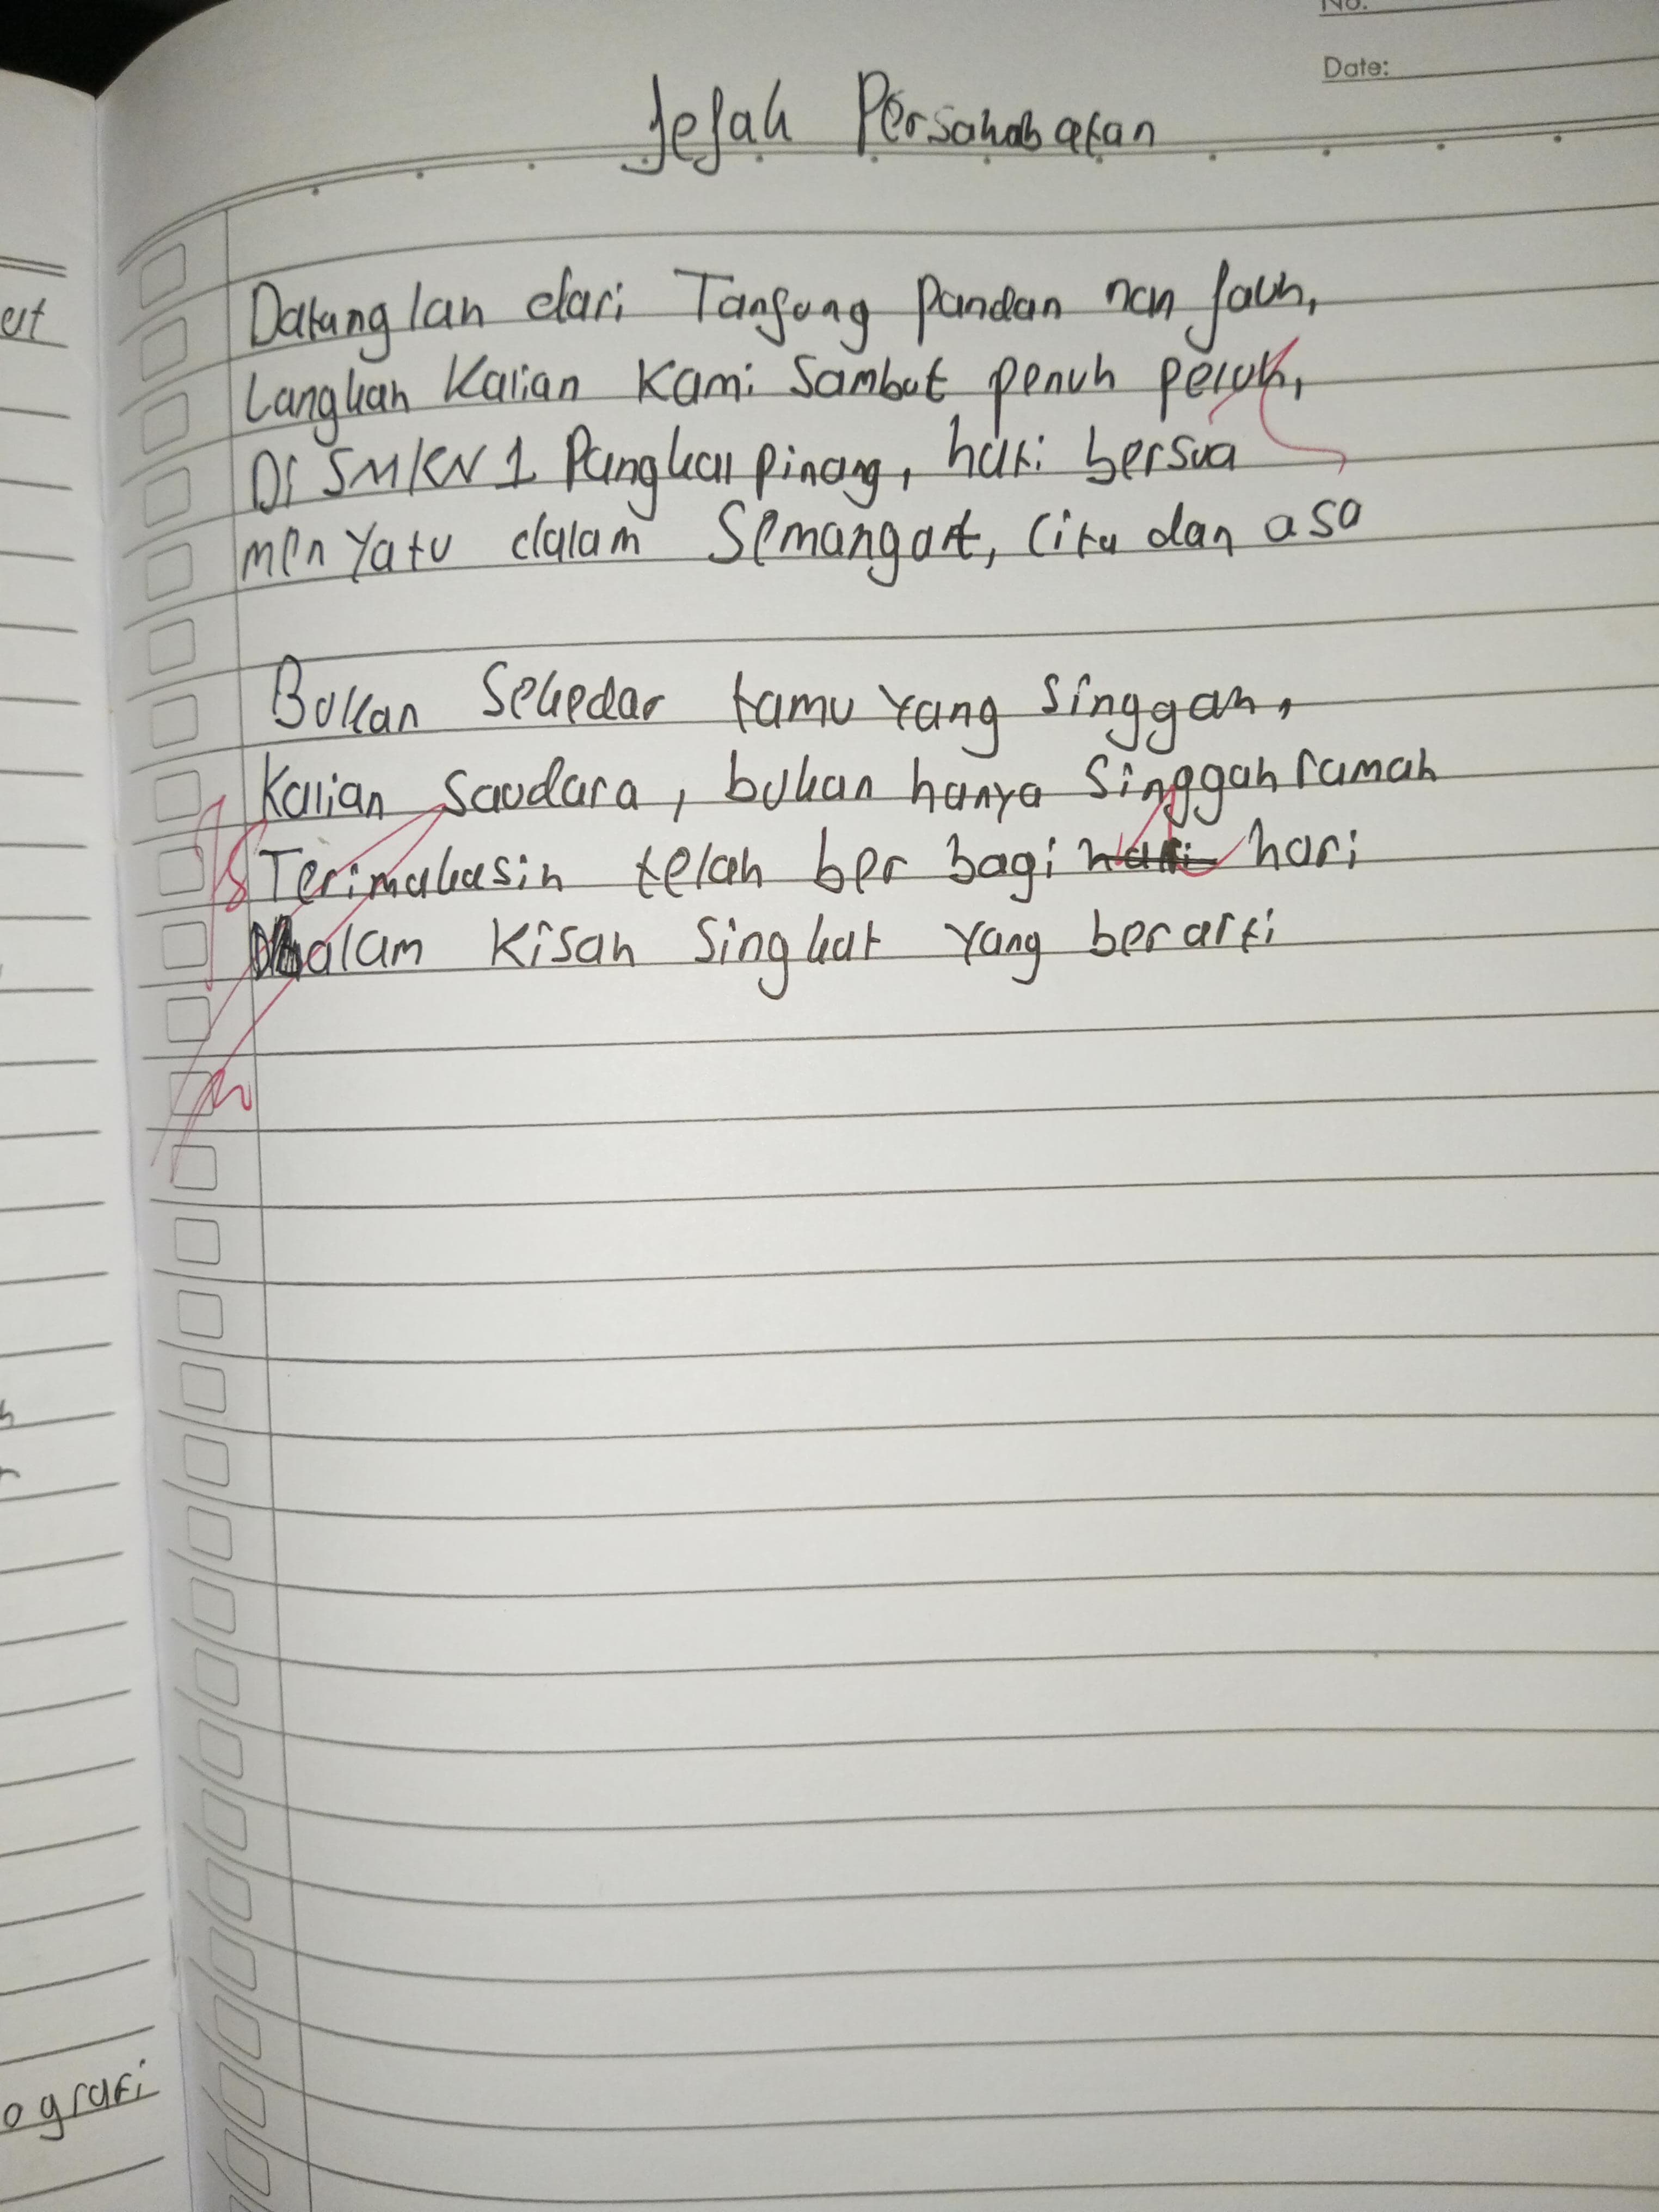 No.
Date:
Jejak Persahabatan
Datanglah dari Tanjung Pandan nan jauh,
Langkah Kalian Kami Sambut penuh peluk,
Di SMKN 1 Pangkalpinang, hati bersua
menyatu dalam Semangat, Cita dan asa
Bukan Sekedar tamu Yang Singgah,
Kalian Saudara, bukan hanya Singgah ramah
Terimakasih telah ber bagi hari
Dalam Kisah Singkat Yang berarti
ografi